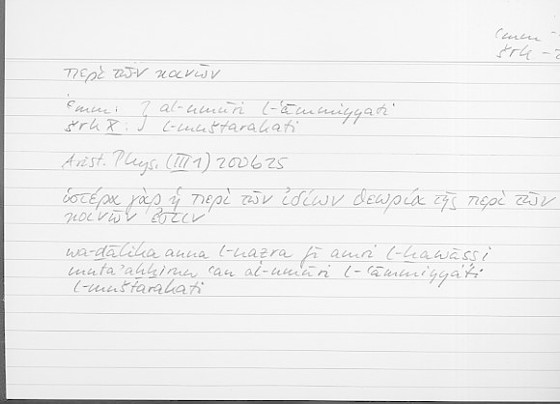 ʿmm -
šrk -
περὶ τῶν κοινῶν
ʿmm: al-umūri l-ʿāmmiyyati
šrk X: l-muštarakati
Arist. Phys. (III 1) 200b25
ὑστέρα γὰρ ἡ περὶ τῶν ἰδίων θεωρία τῆς περὶ τῶν
κοινῶν ἐστιν
wa-ḏālika anna l-naẓra fī amri l-ḫawāṣṣi
mutaʾaḫḫirun ʿan al-umūri l-ʿāmmiyyati
l-muštarakati